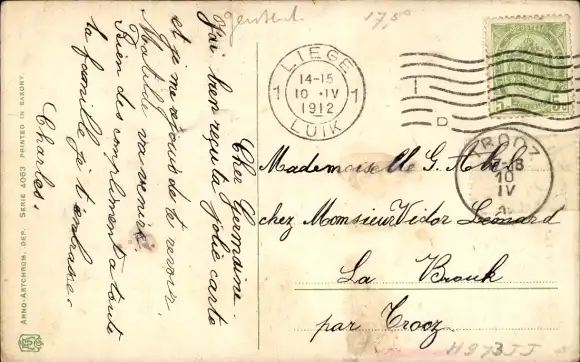 Cher Germaine.
J'ai bien reçu ta jolie carte
et je me rejouis de te revoir.
Mathilde va venir.
Bien des compliment a toute
ta famille je t'embrasse.
Charles.
ARNO-ARTCHROM. DEP. SERIE 4063 PRINTED IN SAXONY.
17,50
LIEGE
14-15
10 IV
1912
LUIK
1 1
1
D
TROOZ
10
IV
Mademoiselle G. Abel
chez Monsieur Victor Léonard
La Brouk
par Trooz